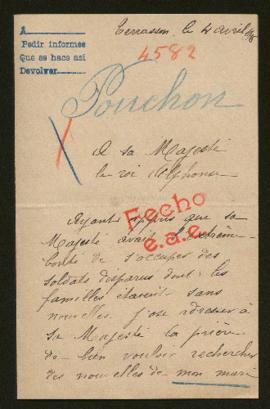 A
Pedir informes
Que se hace así
Devolver
Terrasson, le 4 avril
4582
Pouchon
A sa Majesté
le roi Alphonse
Fecho
e.a.e.
Ayant appris que sa
Majesté avait l'extrême
bonté de s'occuper des
soldats disparus dont les
familles étaient sans
nouvelles, j'ose adresser à
sa Majesté la prière
de bien vouloir rechercher
des nouvelles de mon mari